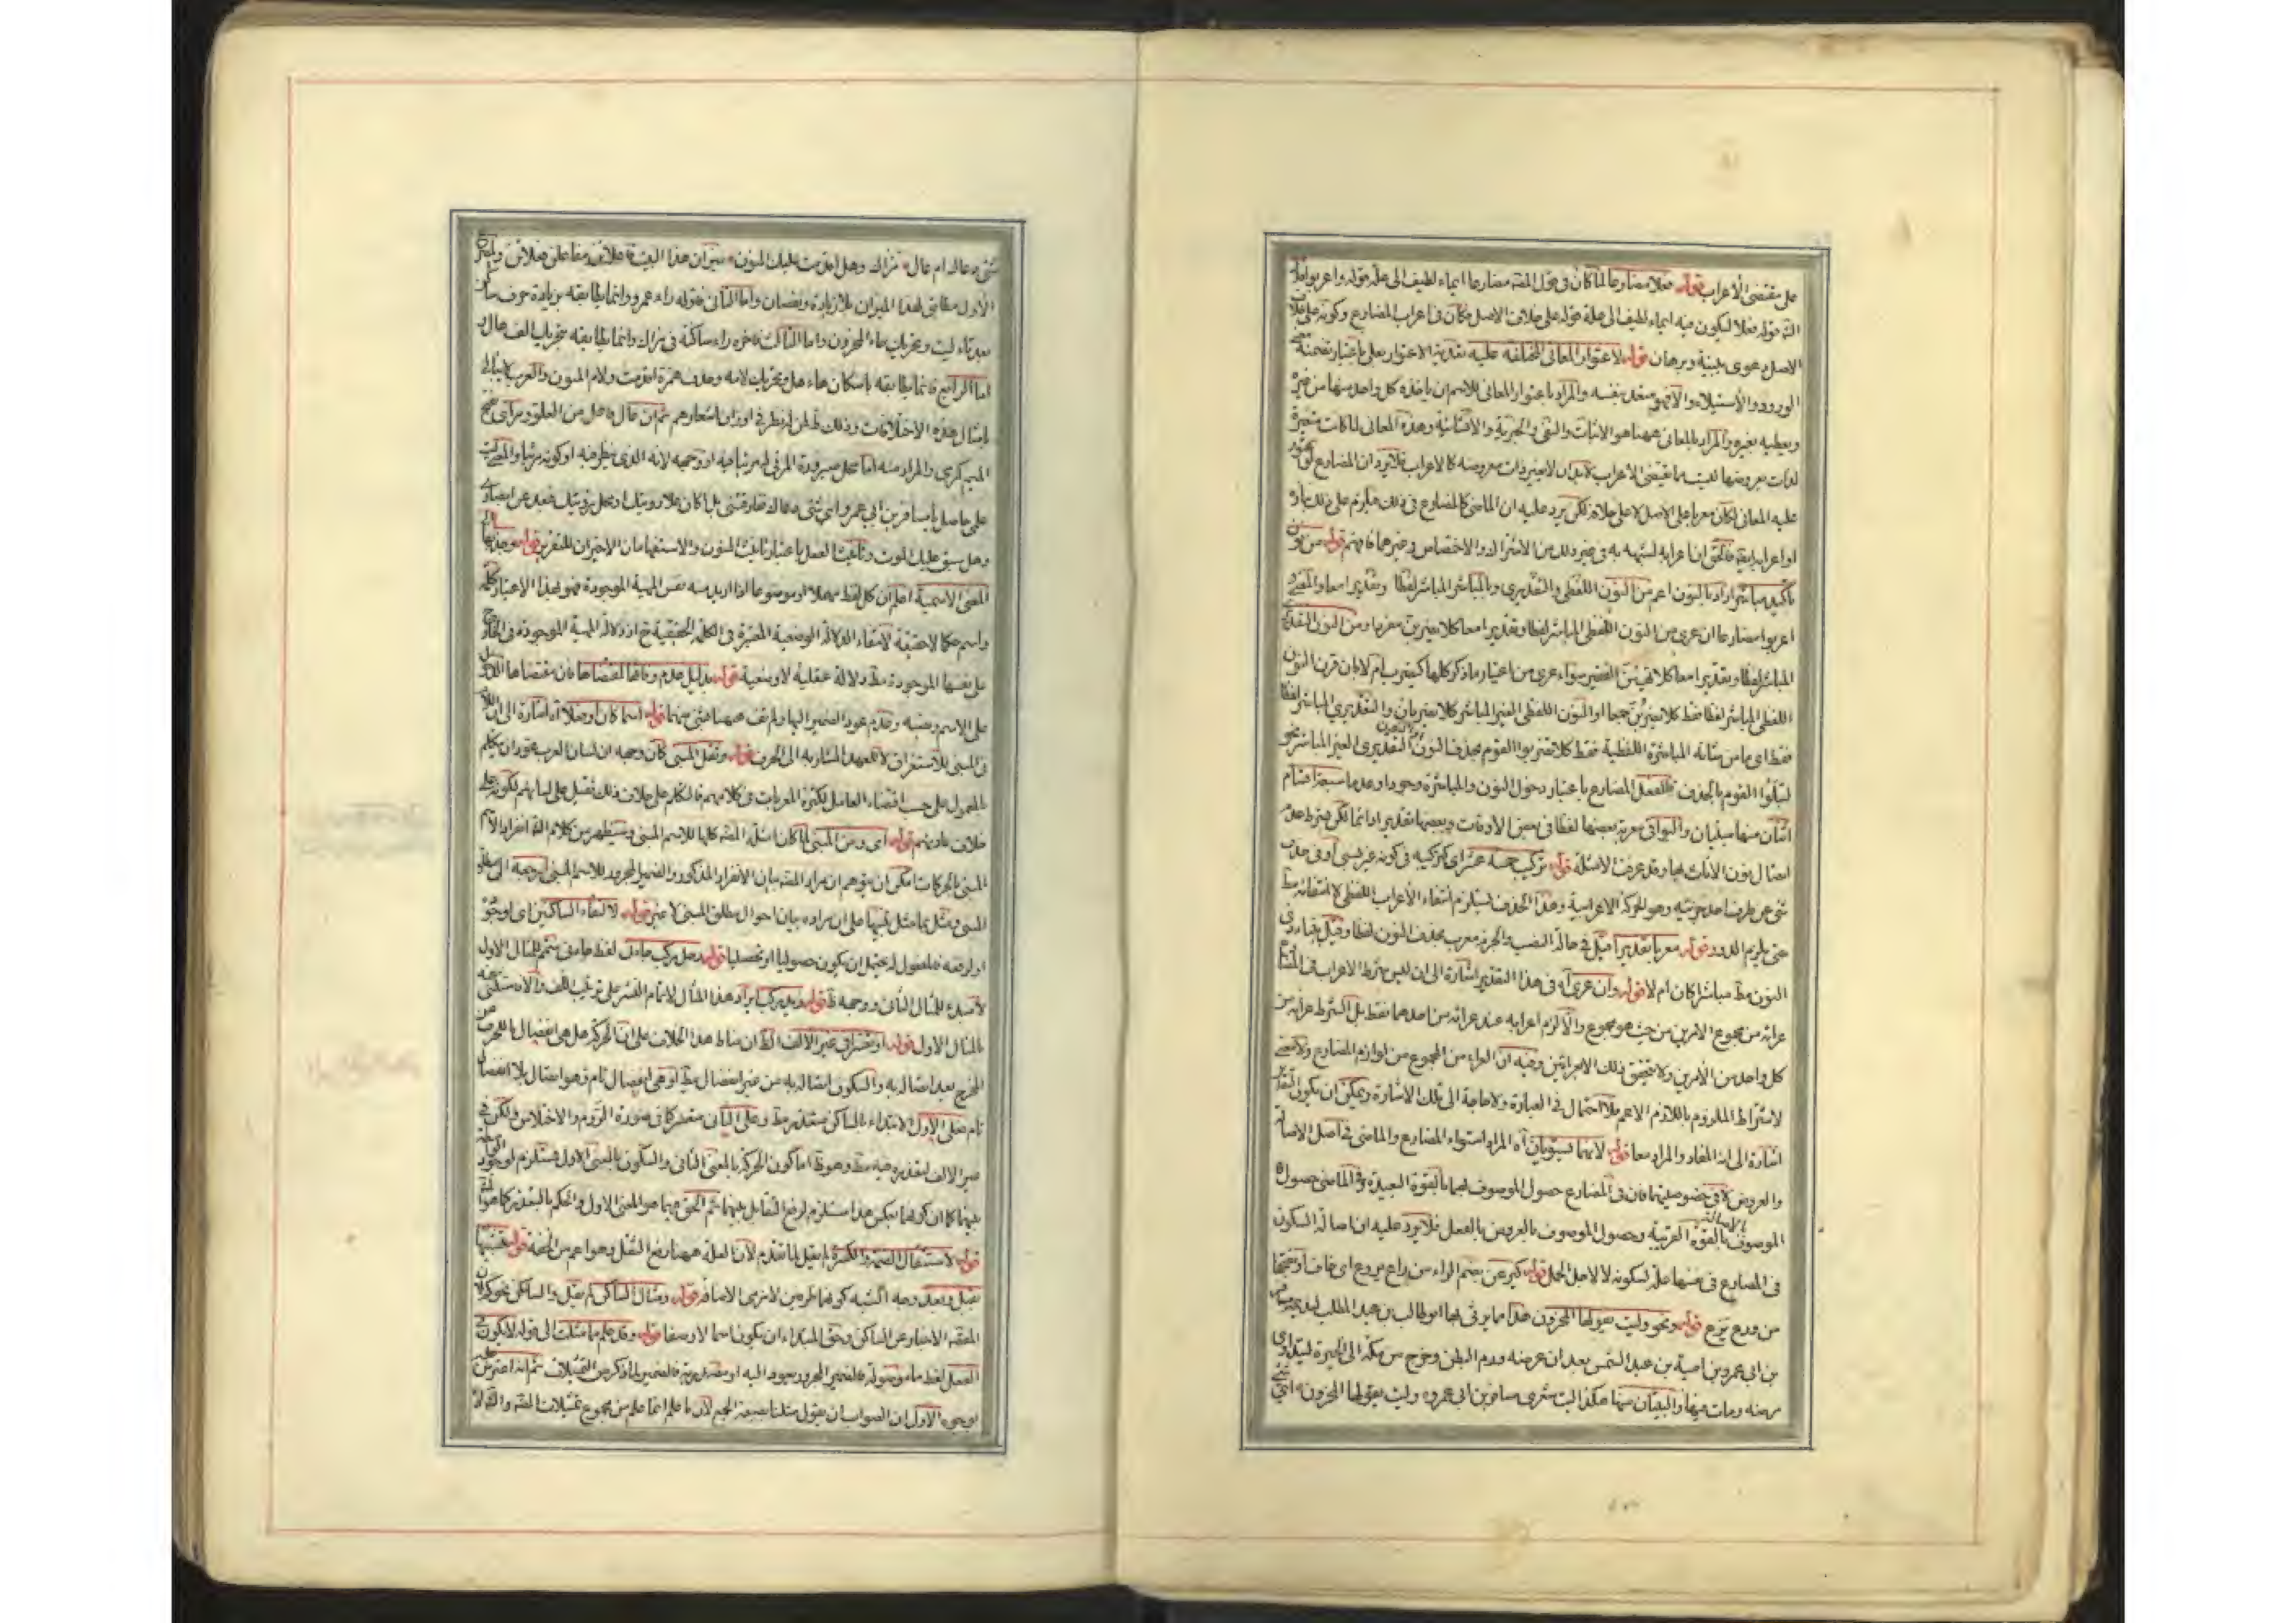 على مقتضى الأعراب قوله فعلا مضارعا لما كان في قول المصنف مضارعا ايماء لطيف الى علة قوله واعربوا
قوله فعلا ليكون فيه ايماء لطيف الى علة قوله على خلاف الاصل فكان في اعراب المضارع وكونه على خلاف
الاصل دعوى ببينة وبرهان قوله لاعتوار المعاني المختلفة عليه تعدية الاعتوار بعلى باعتبار تضمنه معنى
الورود والأستيلاء والا فهو متعد بنفسه والمراد باعتوار المعاني للاسم ان ياخذه كل واحد منها من غيره
ويعطيه بغيره والمراد بالمعاني ههنا هو الاثبات والنفي والخبرية والانشائية وهذه المعاني لما كانت متغيرة
لذات معروضها ليست مما يقتضي الأعراب لا بد ان لا يغير ذات معروضه كالاعراب فلا يرد ان المضارع لو تعتور
عليه المعاني لكان معربا على الاصل لا على خلافه لكن يرد عليه ان الماضي كالمضارع في ذلك فيلزم على ذلك بناؤه
او اعرابه فالحق ان اعرابه لشبهه به في غير ذلك من الاشتراك والاختصاص وغيرهما فافهم قوله من نون
تأكيد مباشر اراد بالنون اعم من النون اللفظي والتقديري وبالمباشر المباشر لفظا وتقديرا معا والمعنى
اعربوا مضارعا ان عرى من النون اللفظي المباشر لفظا وتقديرا معا كلا تضربن مفردا ومن النون التقديري
المباشر لفظا وتقديرا معا كلا تهين الفقير سواء عرى من اغيار ما ذكر كلها كيضرب ام لا بان قرن النون
اللفظي المباشر لفظا فقط كلا تضربن جمعا او النون اللفظي الغير المباشر كلا تضربان والتقديري المباشر لفظا
فقط اى ما من شانه المباشرة اللفظية فقط كلا تضربوا القوم بحذف النون التقديري الغير المباشر نحو
لتبلوا القوم بالحذف فالفعل المضارع باعتبار دخول النون والمباشرة وجودا وعدما سبعة اقسام
اثنان منها مبنيان والبواقي معربة بعضها لفظا في بعض الاوقات وبعضها تقديرا دائما لكن بشرط عدم
اتصال نون الاناث بها وقد عرفت الامثلة قوله تركيب خمسة عشر اى كتركيبه في كونه غير
شيء عن طرف احد جزئيه وهو الحركة الاعرابية وهذا الحذف يستلزم انتفاء الأعراب اللفظي لا انتفائه مط
حتى يلزم الدور قوله معربا تقديرا قيل في حالة النصب والجزم معرب بحذف النون لفظا وقيل
النون مط مباشرا كان ام لا قوله وان عرى آه في هذا التقدير اشارة الى ان ليس شرط الاعراب في المضارع
عرائه من مجموع الامرين من حيث هو مجموع والا لزم اعرابه عند عرائه من احدهما فقط بل الشرط عرائه من
كل واحد من الأمرين ولا يتحقق ذلك الا بعرائين وجيه ان العراء من المجموع من لوازم المضارع ولا معنى
لاشتراط الملزوم باللازم الاعم فلا احتمال في العبارة ولا حاجة الى تلك الاشارة ويمكن ان يكون التقدير
اشارة الى ان المفاد والمراد معا قوله لانهما يستويان آه المراد استواء المضارع والماضي في اصل الاصالة
والعروض لا في خصوصيتهما فان في المضارع حصول الموصوف بهما بالقوة البعيدة وفي الماضي حصول
الموصوف بالاصالة بالقوة القريبة وحصول الموصوف بالعروض بالفعل فلا يرد عليه ان اصالة السكون
في المضارع في منها علة لسكونه لا لاجل الحمل قوله كيرعن بضم الراء من راع يروع اى خاف او فتحها
من ورع يرع قوله ونحو وليت يقولها المحزون هذا مما يرثى بها ابو طالب بن عبد المطلب
بن ابي عمرو بن امية بن عبد الشمس بعد ان عرضه ورم البطن وخرج من مكة الى الحيرة ليتداوى
مرضه ومات فيها والبيتان منها هكذا ليت شعري مسافر بن ابي عمرو وليت يقولها المحزون اي
شيء دهاك ام غال مراك وهل اقدمت عليك المنون ميزان هذا البيت فاعلاتن مفاعلن فعلاتن
الاول مطابق لهذا الميزان بلا زيادة ونقصان واما الثاني فقوله راء عمرو وانما يطابقه بزيادة حرف ساكن
بعد تاء ليت وتحريك هاء المحزون واما الثالث فاخره راء ساكنة في مراك وانما يطابقه بتحريك الف غال
اما الرابع فانما يطابقه باسكان هاء هل وتحريك لامه وحذف همزة اقدمت ولام المنون والعرب
بامثال هذه الاختلافات وذلك ظ لمن نظر في اوزان اشعارهم ثم ان غال فاعل من الغلو ومراى بفتح
الميم كرى والمراد منه اما محل صيرورة المرئي مرئيا فيه او وجهه لانه الذي ينظر فيه او كونه مرئيا والمعنى ليت
على حاصل يا مسافر بن ابي عمرو اي شيء دهاك
وهل سبق عليك الموت وتأنيث الفعل باعتبار تأنيث المنون والاستفهامان الاخيران للتقرير قوله
المعنى الاسمية اعلم ان كل لفظ مهملا او موضوعا اذا اريد به نفس المهية الموجودة فهو بهذا الاعتبار كلمة
واسم حكما لا حقيقة لانتفاء الدلالة الوضعية المعتبرة في الكلمة الحقيقية ح اذ دلالة المهية الموجودة في الخارج
على نفسها الموجودة مط دلالة عقلية لا وضعية قوله بدليل عدم وفائها لمقتضاها فان مقتضاها الدلالة
على الاسم وصفه وعدم عود الضمير اليها ولم تف ههنا بشيء منهما قوله اسما كان او فعلا آه اشارة الى ان اللام
في المبني للاستغراق لا للعهد المشار به الى الحرف قوله وثقل المبني كان وجهه ان لسان العرب تعود ان يتكلم
بالمعمول على حسب اقتضاء العامل لكثرة المعربات في كلامهم فالتكلم على خلاف ذلك ثقيل على لسانهم لكونه على
خلاف عادتهم قوله اى ومن المبني لما كان امثلة المصنف كلها للاسم المبني ويستظهر من كلام انفراد الاسم
المبني بالحركات امكن ان يتوهم ان مراد المصنف بيان الانفراد المذكور والضمير المجرور للاسم المبني ارجعه الى مطلق
المبني ومثل بما مثل تنبيها على ان مراده بيان احوال مطلق المبني لا غير قوله لالتقاء الساكنين اى لوجود
او لرفعه فالمفعول له يحتمل ان يكون حصوليا او تحصيليا قوله وهل يركب جادل لفظ جاء في متمم المثال الاول
لا مبدء للمثال الثاني ووجهه ظ قوله وزيد يركب ايراد هذا المثال لاتمام النشر على ترتيب اللف والا
بالمثال الاول قوله او تعسر في غير الالف الظ ان مناط هذا الخلاف على ان الحركة هل هي انفصال الحرف عن
المخرج بعد اتصاله به والسكون اتصاله به من غير انفصال مط او هي انفصال تام وهو اتصال بلا انفصال
تام فعلى الاول الابتداء بالساكن متعذر مط وعلى الثاني متعسر كما في صورة الروم والاختلاس ولكن في
غير الالف لتعذره فيه مط وهو ظ اما كون الحركة بالمعنى الثاني والسكون بالمعنى الاول مستلزم لوجود
بينهما كما ان كونهما بعكس هذا مستلزم لرفع التقابل بينهما ثم الحق فيهما هو المعنى الاول والحكم بالتعذر كما هو
قوله لاستثقال الضمة والكسرة لم يقل لما تقدم لان العلة ههنا رفع الثقل وهو اعم من الخفة قوله
قبل وبعد وجه الشبه كونهما ظرفين لازمي الاضافة قوله ومثال الساكن لم يقل والساكن نحو كم لان
المقصد الاخبار عن الساكن وحق المبتداء ان يكون اسما لا وصفا قوله وقد علم مما مثلت الى قوله لا يكون في
الفعل لفظ ما موصولة فالضمير المجرور يعود اليه او مصدرية فالضمير لما ذكر من التمثيلات ثم انه اعترض عليه
بوجوه الاول ان الصواب ان يقول مثلنا بصيغة الجمع لان ما علم انما علم من مجموع تمثيلات المصنف والشارح